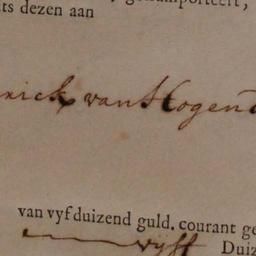 ts dezen aan
rick van Hogend
van vyf duizend guld. courant ge
vyff Duiz